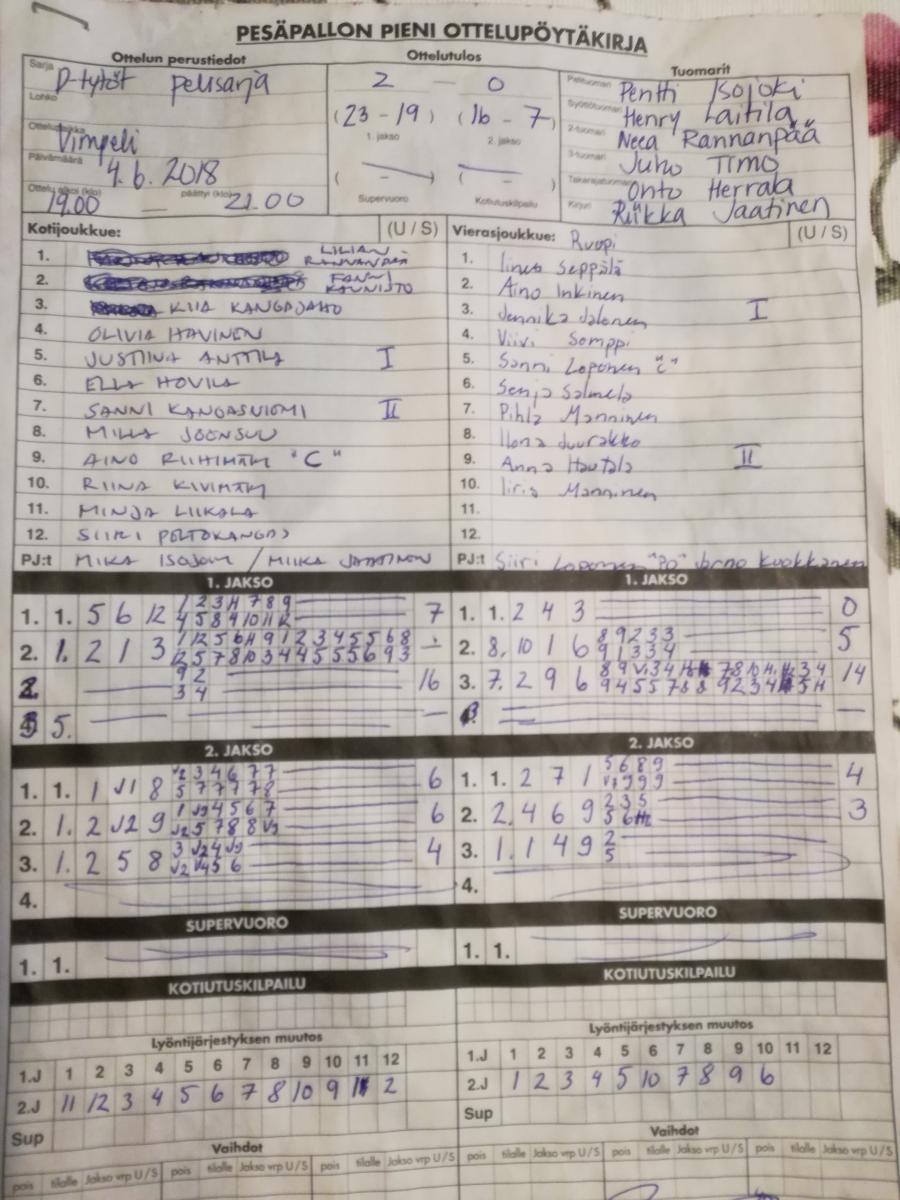 PESÄPALLON PIENI OTTELUPÖYTÄKIRJA
Ottelun perustiedot Ottelutulos Tuomarit
Sarja D-tytöt pelisarja 2 - 0 Pelituomari Pentti Isojoki
Lohko (23 - 19) (16 - 7) Syöttötuomari Henry Laitila
1. jakso 2. jakso 2-tuomari Neea Rannanpää
Vimpeli 3-tuomari Juho Timo
Päivämäärä 4.6.2018 ( - ) ( - ) Takarajatuomari Onto Herrala
Ottelu alkoi (klo) 19.00 — päättyi (klo) 21.00 Supervuoro Kotiutuskilpailu Kirjuri Riikka Jaatinen
Kotijoukkue: (U / S) Vierasjoukkue: Ruopi (U / S)
1. LILIAN RANNANPÄÄ 1. Iines Seppälä
2. FANNI KAUNISTO 2. Aino Inkinen
3. KIIA KANGASAHO 3. Jennika Jalonen I
4. OLIVIA HAVINEN 4. Viivi Somppi
5. JUSTIINA ANTTILA I 5. Sanni Loponen "C"
6. ELLA HOVILA 6. Senja Salmela
7. SANNI KANGASNIEMI II 7. Pihla Manninen
8. MILLA JOENSUU 8. Ilona Juurakko
9. AINO RIIHIMÄKI "C" 9. Anna Hautala II
10. RIINA KIVIMÄKI 10. Iiris Manninen
11. MINJA LIIKALA 11.
12. SIIRI PELTOKANGAS 12.
PJ:t MIKA ISOJOKI / MIIKA JAATINEN PJ:t Siiri Loponen "PO" Jarno Kuokkanen
1. JAKSO 1. JAKSO
1. 1. 5 6 12 1 2 3 11 7 8 9 7 1. 1. 2 4 3 0
4 5 8 4 10 11 12
2. 1. 2 1 3 1 12 5 6 11 9 1 2 3 4 5 5 6 8 - 2. 8. 10 1 6 8 9 2 3 3 5
12 5 7 8 10 3 4 4 5 5 5 6 9 3 9 1 3 3 4
9 2 16 3. 7. 2 9 6 14
3 4
5. —
2. JAKSO 2. JAKSO
1. 1. 1 J1 8 J2 3 4 6 7 7 6 1. 1. 2 7 1 5 6 8 9 4
5 7 7 7 7 8 V1 9 9 9
2. 1. 2 J2 9 1 J3 4 5 6 7 6 2. 2. 4 6 9 2 3 5 3
J2 5 7 8 8 V3 5 6
3. 1. 2 5 8 3 J2 4 J3 4 3. 1. 1 4 9 2
J2 V4 5 6 5
4. 4.
SUPERVUORO SUPERVUORO
1. 1. 1. 1.
KOTIUTUSKILPAILU KOTIUTUSKILPAILU
Lyöntijärjestyksen muutos Lyöntijärjestyksen muutos
1.J 1 2 3 4 5 6 7 8 9 10 11 12 1.J 1 2 3 4 5 6 7 8 9 10 11 12
2.J 11 12 3 4 5 6 7 8 10 9 1 2 2.J 1 2 3 4 5 10 7 8 9 6
Sup Sup
Vaihdot Vaihdot
pois tilalle Jakso vrp U / S pois tilalle Jakso vrp U / S pois tilalle Jakso vrp U / S pois tilalle Jakso vrp U / S pois tilalle Jakso vrp U / S pois tilalle Jakso vrp U / S